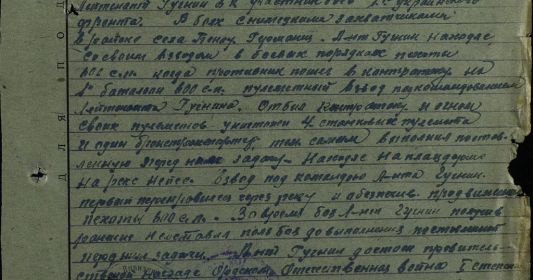 Лейтенант Гуснин В.К участник боев 1го украинского
фронта. В боях с немецкими захватчиками
в районе села
со своим взводом в боевых порядках пехоты
600 с.п. когда противник пошел в контратаку на
батальон 600 с.п. пулеметный взвод под командованием
лейтенанта Гуснина. Отбил контратаку и огнем
своих пулеметов уничтожил 4 станковых пулемета
и один бронетранспортер, тем самым выполнил постав-
ленную перед ним задачу. Находясь на плацдарме
на реке Нейсе. Взвод под командой Л-нта Гуснин
первый переправился через реку и обеспечил продвижение
пехоты 600 с.п. За время боя Л-нт Гуснин получив
ранение не оставил поле боя до выполнения поставленной
перед ним задачи. Гуснин достоин правитель-
ственной награде Ордена Отечественная война I степени
ДЛЯ ПОД